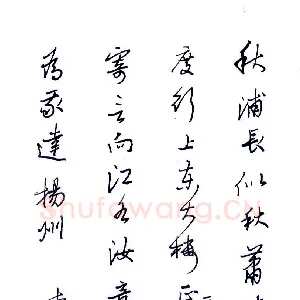 秋浦長似秋蕭
度行上東大樓正
寄言向江水汝意
為我達揚州
shufawang.CN